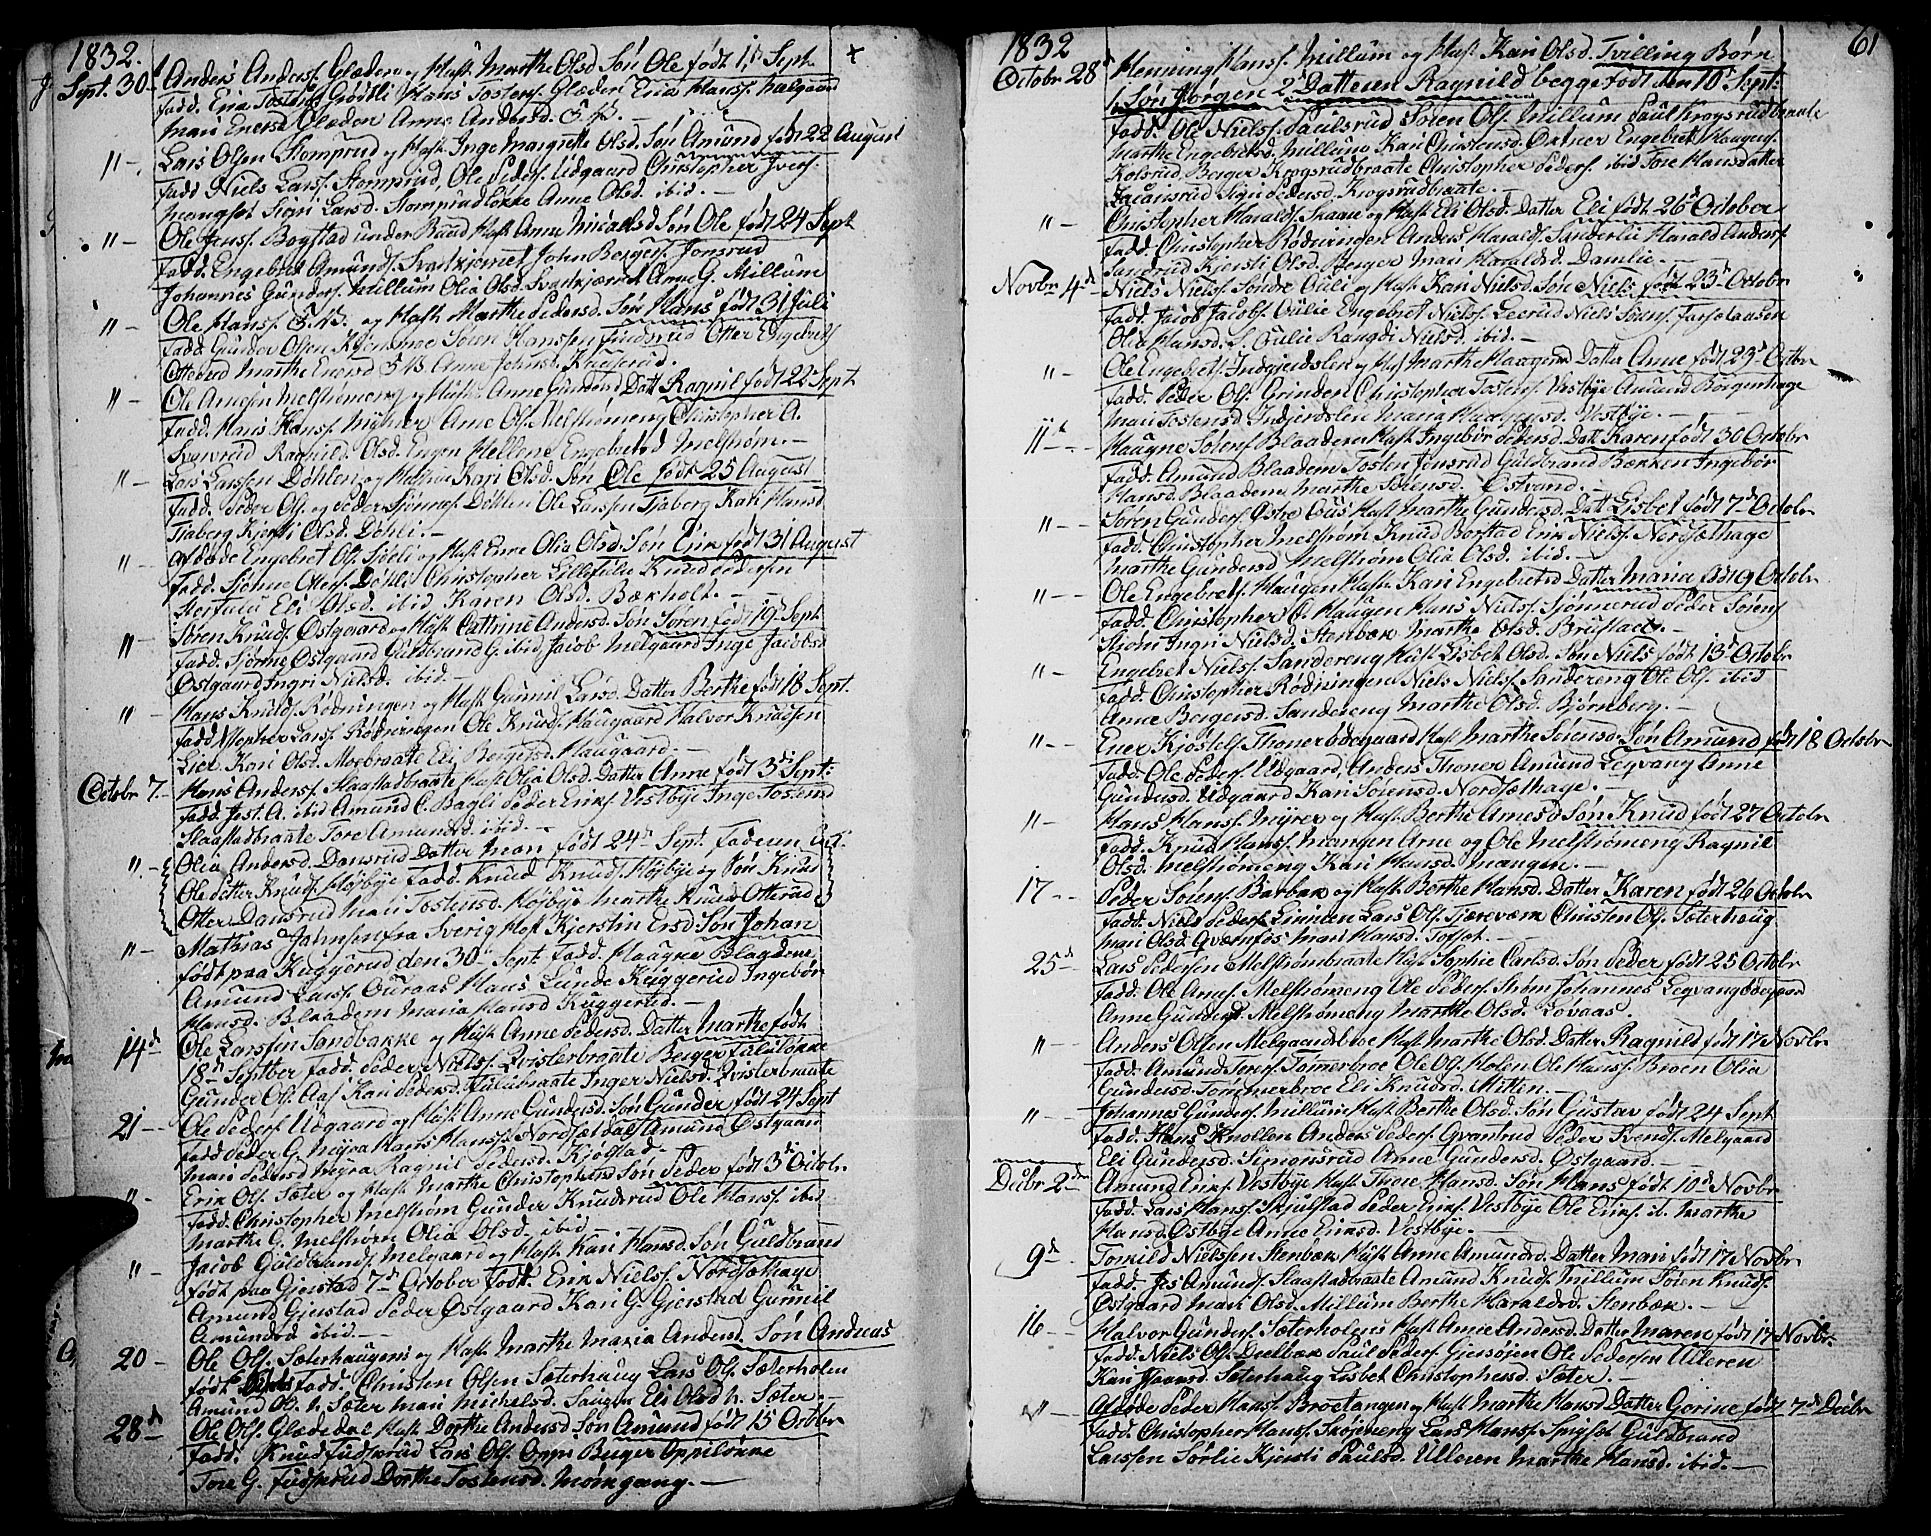 1832.
Sept. 30 Anders Anders. Glæden og Hust. Marthe Olsd. Søn Ole født 11 Sept.
Fadd. Eric Tostens. Grøtli Hans Tostens. Glæden Eric Hans. Halgaard
Mari Enersd. Glæden Anne Andersd. S. M.
11 - Lars Olsen Stomprud og Hust. Inge Margrethe Olsd. Søn Amund født 22 August
Fadd Niels Lars. Stomprud, Ole Peders. Udgaard Christopher Ivers.
Mangset Sigri Larsd. Stomprudløkke Anne Olsd. ibid.
11 - Ole Jens. Bogstad under Ruud Hust. Anne Nicaelsd Søn Ole født 24 Sept
Fadd. Engebret Amunds. Svartkjernet John Bergers. Jonsrud
Johannes Gunders. Millum Olia Olsd. Svartkjernet Anne G. Millum
11 - Ole Hans. S. M. og Hust. Marthe Pedersd. Søn Hans født 31 Juli
Fadd. Gunder Olsen Kjensmoe Søren Hanssen Findsrud Otter Engebrets.
Otterud Marthe Enersd. S. M. Anne Johnsd. Knuserud.
11 - Ole Arnesen Melstrømeng og Hust. Anne Gundersd Datt Ragnil født 22 Sept
Fadd. Hans Hans. Myhrer Arne Ols. Melstrømeng Christopher A.
Svenrud Ragnild Olsd. Engen Hellene Engebretsd Melstrøm.
11 - Lars Larssen Døhlen og Hust. Kari Olsd. Søn Ole født 25 August
Fadd. Peder Ols. og Peder Sjønnes. Døhlen Ole Larssen Tjaberg Kari Hansd
Tjaberg Kjersti Olsd. Døhli.
11 - Afdøde Engebret Ols. Sideli og Hust. Enne Olia Olsd. Søn Eric født 31 August
Fadd. Sjønne Oles. Døhli Christopher Lillefulie Knud Pedersen
Storfulie Eli Olsd. ibid Karen Olsd. Bækholt.
11 - Søren Knuds. Østgaard og Hust. Cattrine Andersd. Søn Søren født 19 Sept
Fadd. Sjønne Østgaard Guldbrand G. ibid Jacob Melgaard Inge Jacobsd
Østgaard Ingri Nielsd. ibid.
11 - Hans Knuds. Rødningen og Hust. Gunnil Larsd. Datter Berthe født 18 Sept.
Fadd. Stopher Lars. Rødningen Ole Knuds. Haugaard Halvor Knudsen
Lier Kari Olsd. Moebraate Eli Bergersd. Haugaard.
Octobr 7. Hans Anders. Slaastadbraate Hust. Olia Olsd. Datter Anne født 3d Sept:
Fadd. Jest A. ibid Amund C. Bagli Peder Eriks. Vestbye Inge Tostensd
Slaastadbraate Tore Amundsd. ibid.
11 - Olia Andersd. Dansrud Datter Mari født 24d Sept. Faderen Ent.
Ole Petter Knuds. Høybye Fadd. Knud Knuds. Høybye og Søn Knud
Otter Dansrud Mari Tostensd. Høybye Marthe Knudsd Otterud
11 - Mathias Johnsen fra Sverig Hust. Kjerstin Ersd Søn Johan
født paa Kuggerud den 30d Sept. Fadd. Haagne Blaadene
Amund Lars. Ouraas Hans Lunde Kuggerud Ingebør
Hansd. Blaadem Maria Hansd Kuggerud.
14d Ole Larssen Sandbakke og Hust. Anne Pedersd. Datter Marthe født
18d Septber Fadd. Peder Niels. Qvisterbraate Berger Fululøkke
Gunder Ols. Olaf Kari Pedersd. Fuluebraate Inger Nielsd. Qvisterbraate
21 - Ole Peders. Udgaard og Hust. Anne Gundersd. Søn Gunder født 24 Sept
Fadd Peder G. Myra Hans Hans. Nordsæthage Amund Østgaard
Mari Pedersd Myra Ragnil Pedersd. Kjøgstad.
11 - Erik Ols. Sæter og Hust. Marthe Christophersd Søn Peder født 3d Octobr.
Fadd. Christopher Melstrøm Gunder Knudsrud Ole Hans. ibid
Marthe G. Melstrøm Olia Olsd. ibid
11 - Jacob Guldbrands. Melgaard og Hust. Kari Hansd. Søn Guldbrand
født paa Gjerstad 7d October Fadd. Erik Niels. Nordsæthage
Amund Gjerstad Peder Østgaard Kari G. Gjerstad Gunnil
Amundsd ibid
20 - Ole Ols. Sæterhaugens og Hust. Marthe Maria Andersd. Søn Andreas
født Fadd. Christen Olsen Sæterhaug Lars Ols. Sæterholen
Amund Ols. N. Sæter Mari Michelsd. Saugen Eli Olsd N. Sæter.
28d Ole Ols. Glædedal Hust. Dorthe Andersd Søn Amund født 15 Octobr
Fadd. Knud Fudskrud Lars Ols. Oppi Berger Oppiløkke
Tore G. Fudskrud Dorthe Tostensd. Momgang.
1832
61
Octobr 28d Henning Hans. Millum og Hust. Kari Olsd. Tvilling Børn
1. Søn Jørgen 2d Datteren Ragnild begge født den 10d Sept:
Fadd. Ole Niels. Paulsrud Søren Ols. Millum Paul Krogsrudbraate
Marthe Engebretsd. Millum Kari Christensd. Østner Engebret Haagens.
Kolsrud Berger Krogsrudbraate Christopher Peders. ibid Tore Hansdatter
Sigri Pedersd. Krogsrudbraate.
11 - Christopher Haralds. Skaare og Hust Eli Olsd. Datter Eli født 26d October
Fadd. Christopher Rødningen Anders Haralds. Sanderlie Harald Anders.
Sanderud Kjersti Olsd. Berger Mari Haraldsd. Damlie.
Novbr. 4d Niels Niels. Søndre Oulie og Hust. Kari Nielsd. Søn Niels født 23d Octobr
Fadd. Jacob Jacobs. Oulie Engebret Niels. Leerud Niels Sørens.
Olia Hansd. S. Oulie Rangdi Nielsd. ibid.
11 - Ole Engebrets. Indgjerdslen og Hust Marthe Haagensd Datter Anne født 23d Octbr
Fadd. Peder Ols. Grinder Christopher Tostens. Vestbye Amund Borgenhage
Mari Tostensd Indjerdslen Maria Haagensd. Vestbye.
11d Haagne Sørens. Blaadem Hust. Ingebør Pedersd. Datt Karen født 30 Octobr
Fadd. Amund Blaadem Tosten Jonsrud Guldbrand Bækken Ingebør
Hansd. Blaadem Marthe Sørensd. Østvand.
11 - Søren Gunders. Østre Buus Hust. Marthe Gundersd. Datt Lisbet født 7d Octobr
Fadd. Christopher Melstrøm Knud Borstad Erik Niels. Nordsæthage
Marthe Gundersd Melstrøm Olia Olsd. ibid.
11 - Ole Engebrets. Haugen Hust. Kari Engebretsd Datter Maria født 9 Octobr
Fadd. Christopher C. Haugen Hans Niels. Sjønnerud Peder Sørens
Strøm Ingri Nielsd. Stenbæk Marthe Olsd. Brustad.
11 - Engebret Niels. Sandereng Hust. Lisbet Olsd. Søn Niels født 13d Octobr
Fadd. Christopher Rødningen Niels Niels. Sandereng Ole Ols. ibid
Anne Bergersd. Sandereng Marthe Olsd. Bjørnberg.
11 - Ener Kjøstels. Thonerbøegaard Hust Marthe Sørensd. Søn Amund født 18 Octobr
Fadd. Ole Peders. Udgaard, Anders Thoner Amund Legvang Anne
Gundersd. Udgaard Kari Sørensd. Nordsæthage.
11 - Hans Hans. Myrer og Hust. Berthe Arnesd Søn Knud født 27 Octobr
Fadd. Knud Hans. Mangen Arne og Ole Melstrømeng Ragnil
Olsd. Melstrømeng Kari Hansd. Mangen.
17 - Peder Sørens. Barbak og Hust Berthe Hansd. Datter Karen født 26 Octobr
Fadd. Niels Peders. Linnien Lars Ols. Tjærevæk Christen Ols. Sæterhaug
Mari Olsd. Qværnfos Mari Hansd. Tosset.
25d Lars Pedersen Melstrømbraate Hust Sophie Carlsd. Søn Peder født 25 Octobr
Fadd. Ole Arnes. Melstrømeng Ole Peders. Strøm Johannes Legvangbøegaar
Anne Gundersd. Melstrømeng Marthe Olsd. Løvaas.
11 - Anders Olsen Melgaardsboe Hust Marthe Olsd. Datter Ragnild født 17 Novbr
Fadd. Amund Jens. Tømerbroe Ole Ols. Holen Ole Hans. Broen Olia
Gundersd. Tømmerbroe Eli Knudsd. Mitten.
11 - Johannes Gunders. Millum Hust Berthe Olsd. Søn Gustav født 24 Sept
Fadd. Hans Knollen Anders Peders. Qvantrud Peder Svends. Melgaard
Eli Gundersd. Simonsrud Anne Gundersd. Østgaard
Decbr 2d Amund Eriks. Vestbye Hust Thore Hansd. Søn Hans født 10d Novbr.
Fadd. Lars Hans. Skjulstad Peder Eriks. Vestbye Ole Eriks. ib. Marthe
Hansd. Østbye Anne Eriksd. Vestbye.
9d Tomild Nielssen Stenbæk Hust Anne Amundsd. Datter Mari født 17 Novbr
Fadd. Jes Amunds. Slaastadbraate Amund Knuds. Millum Søren Knuds.
Østgaard Mari Olsd. Millum Berthe Haraldsd. Stenbæk.
16 - Halvor Gunders. Sæterholens Hust Anne Andersd. Datter Maren født 17 Novbr.
Fadd. Niels Ols. Paul Peders. Gjersøjen Ole Pedersen Ulleren
Kari Sæterhaug Lisbet Christophersd. Sæter.
11 - Afdøde Peder Hans. Broetangen og Hust Marthe Hansd Datter Gorine født 7d Decbr
Fadd. Christopher Hans. Skøjeneng Lars Hans. Spigset Guldbrand
Larssen Sørlie Kjersti Paulsd. Ulleren Marthe Hansd. ibid.